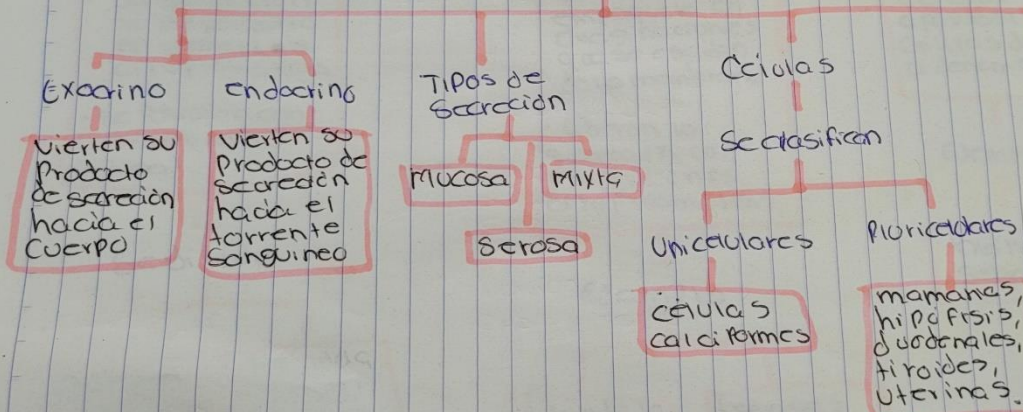 Exocrino
vierten su
Producto
de secreción
hacia el
cuerpo
endocrino
vierten su
Producto de
secreción
hacia el
torrente
sanguineo
Tipos de
Secreción
Mucosa
Mixta
Serosa
Células
Se clasifican
Unicelulares
células
calciformes
Pluricelulares
mamarias,
hipofisis,
duodenales,
tiroides,
uterinas.